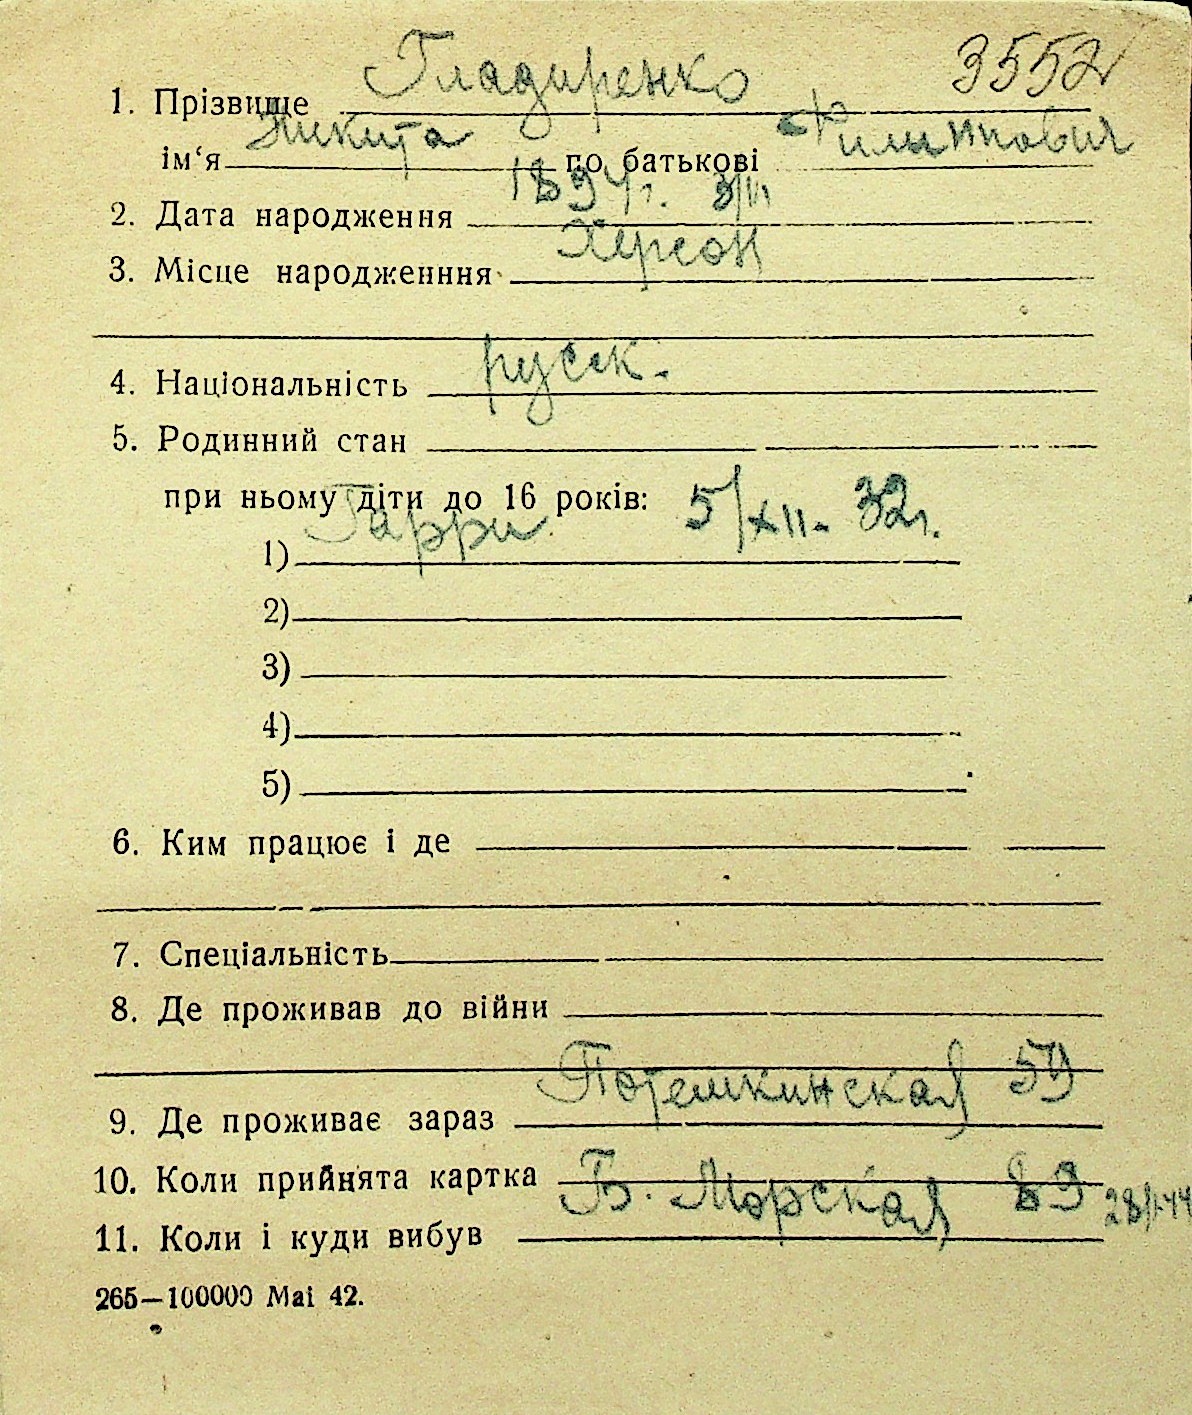 3552
1. Прізвище Гладиренко
ім‘я Никита по батькові Филиппович
2. Дата народження 1894г. 3/III
3. Місце народженння Херсон
4. Національність русск.
5. Родинний стан
при ньому діти до 16 років: 5/XII- 32г.
1) Гарри
2)
3)
4)
5)
6. Ким працює і де
7. Спеціальність
8. Де проживав до війни
9. Де проживає зараз Потемкинская 59
10. Коли прийнята картка Б. Морская 89
11. Коли і куди вибув
265—100000 Mai 42.